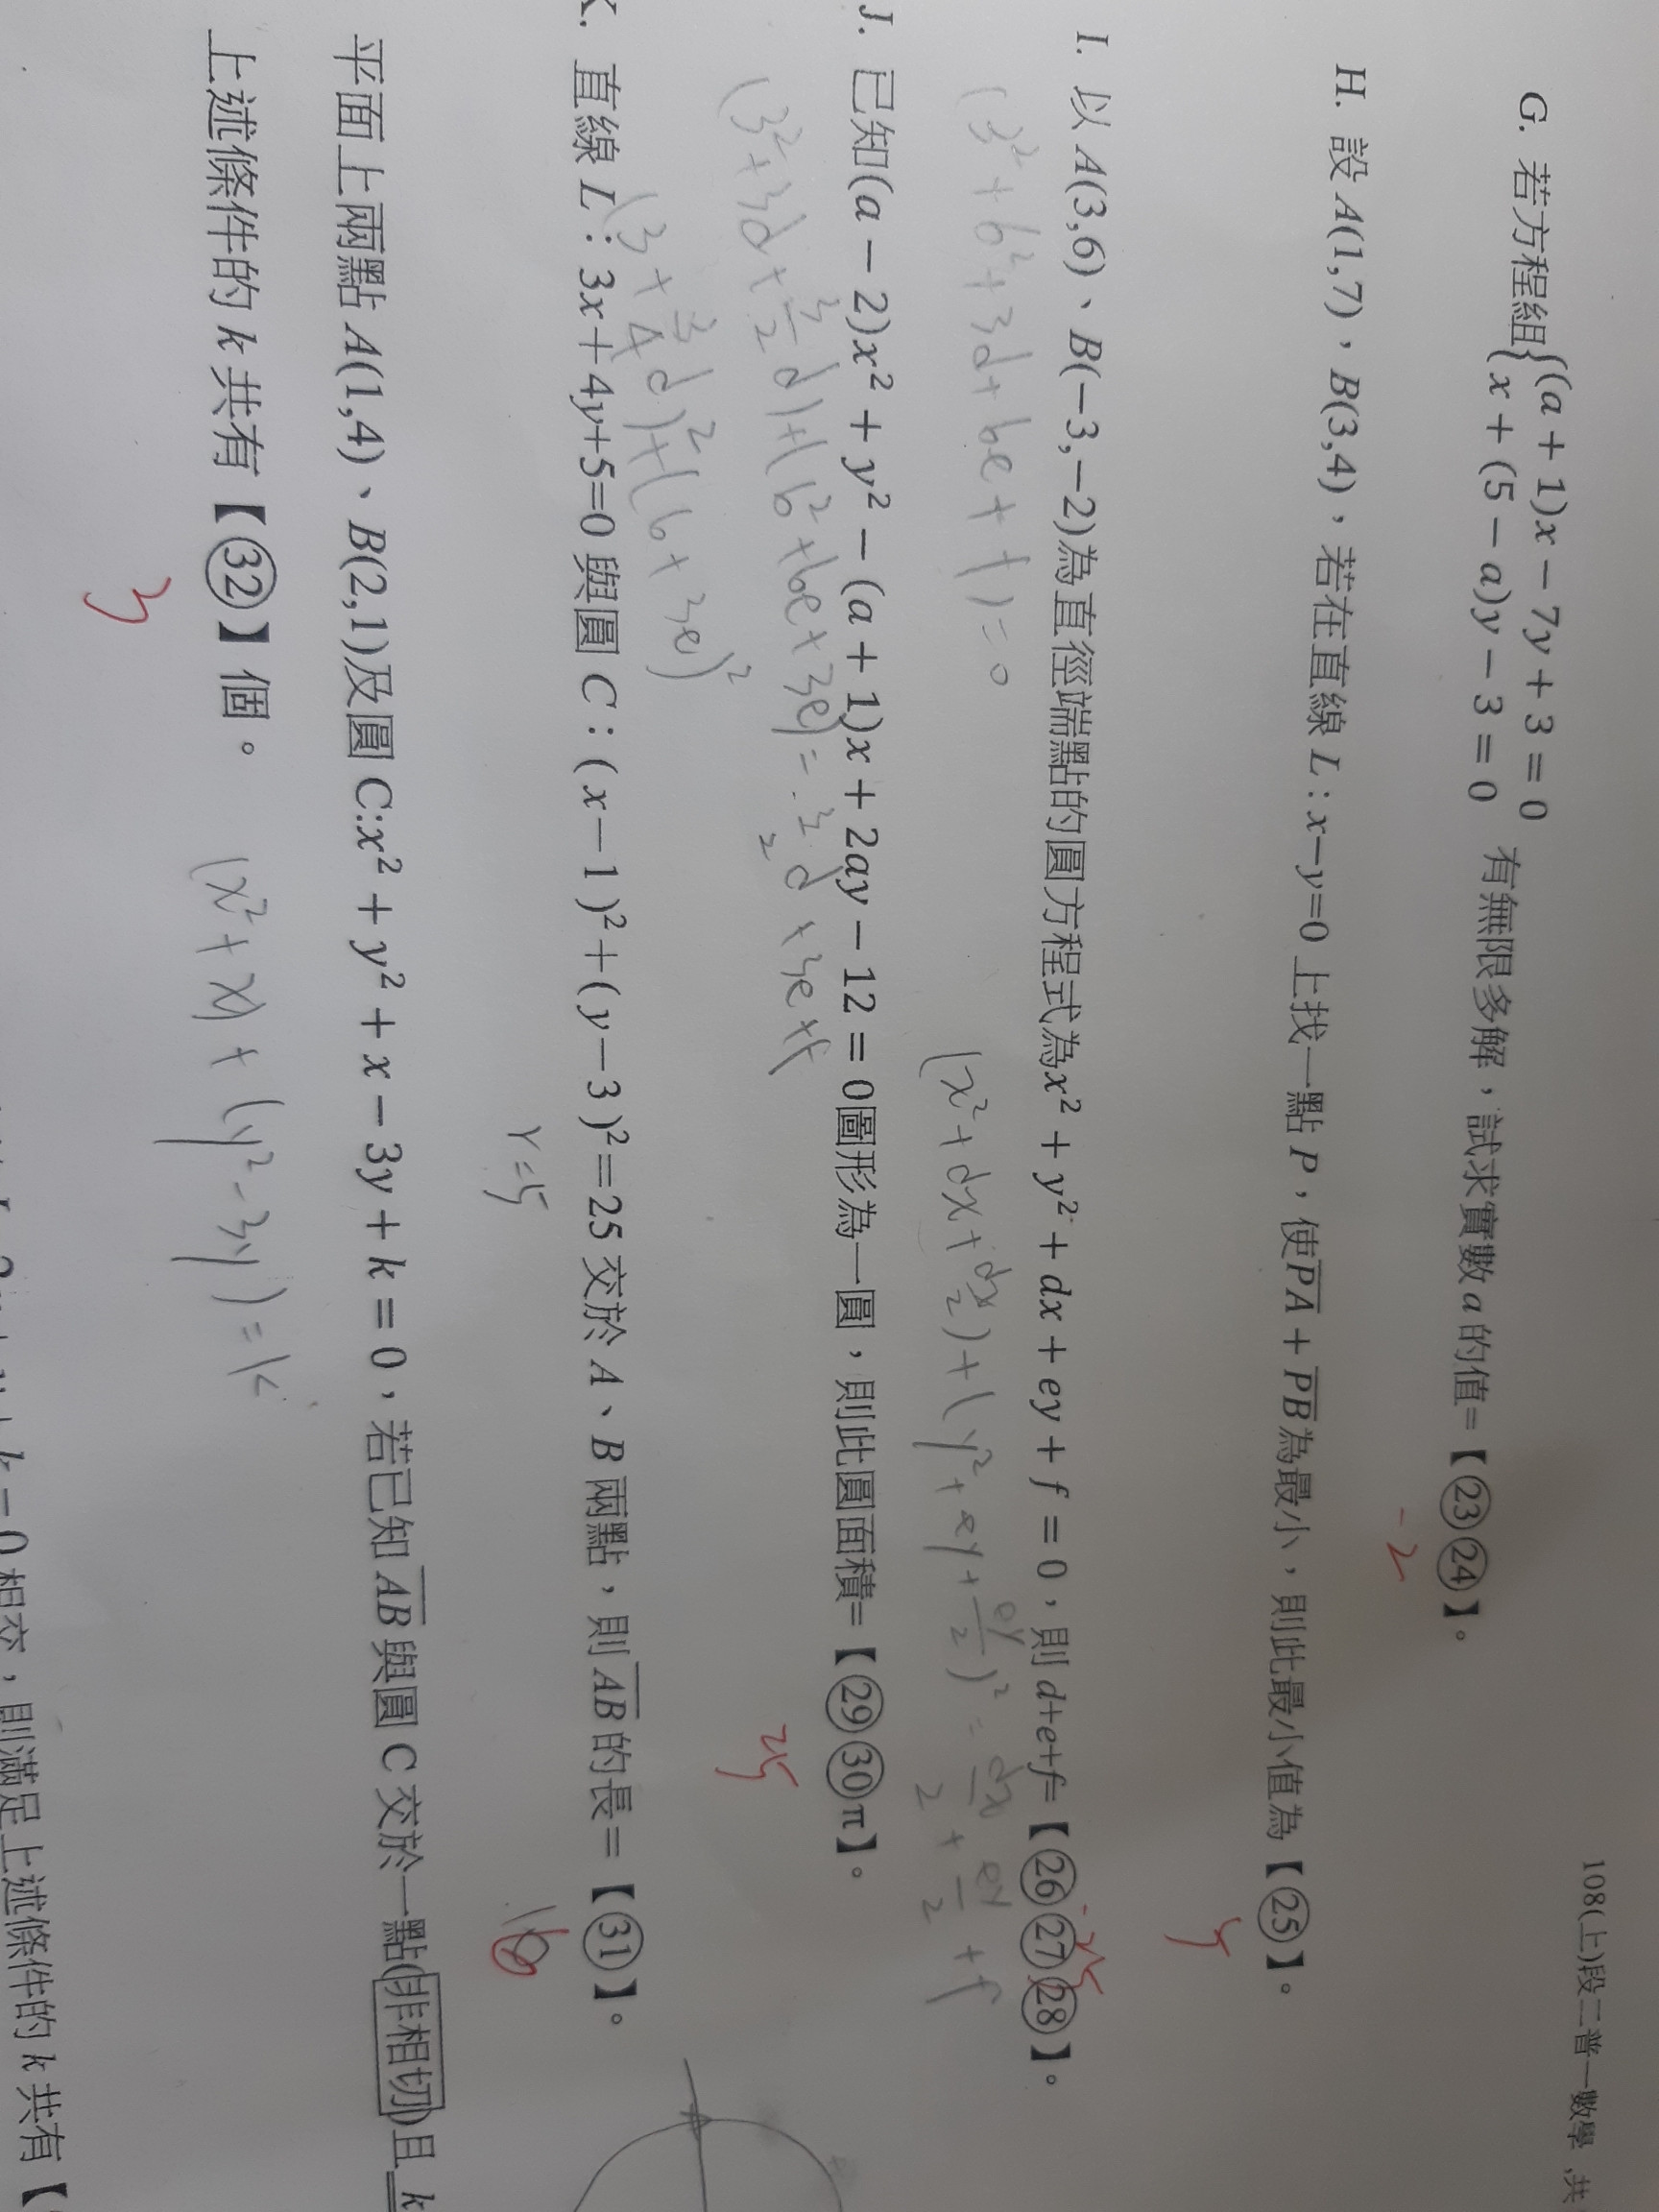 108(上)段二普一數學,共
G. 若方程組{(a + 1)x − 7y + 3 = 0
x + (5 − a)y − 3 = 0 有無限多解,試求實數 a 的值=【㉓㉔】。
-2
H. 設 A(1,7)、B(3,4),若在直線 L:x−y=0 上找一點 P,使PA + PB為最小,則此最小值為【㉕】。
5
I. 以 A(3,6)、B(−3,−2)為直徑端點的圓方程式為x² + y² + dx + ey + f = 0,則 d+e+f=【㉖㉗㉘】。
(3² + 6² + 3d + 6e + f) = 0
J. 已知(a − 2)x² + y² − (a + 1)x + 2ay − 12 = 0圖形為一圓,則此圓面積=【㉙㉚π】。
25
K. 直線 L:3x + 4y+5=0 與圓 C:(x−1)²+(y−3)²=25 交於 A、B 兩點,則 AB 的長=【㉛】。
r=5
平面上兩點 A(1,4)、B(2,1)及圓 C:x² + y² + x − 3y + k = 0,若已知 AB 與圓 C 交於一點(非相切)且 k
上述條件的 k 共有【㉜】個。
3
(x² + x) + (y² - 3y) = k
k = 0 相交,則滿足上述條件的 k 共有【